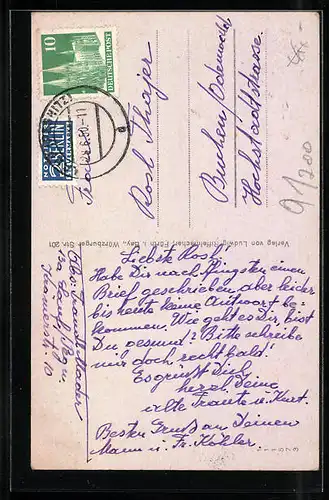 10
DEUTSCHE POST
NOTOPFER
2 BERLIN
STEUERMARKE
Rosl Thajer
Buchen/Odenwald
Hochstadtstrasse.
91200
Verlag von Ludwig Riffelmacher, Fürth i. Bay., Würzburger Str. 201
Liebste Rosl!
Habe Dir nach Pfingsten einen
Brief geschrieben, aber leider
bis heute keine Antwort be=
kommen. Wie geht es Dir, bist
Du gesund? Bitte schreibe
mir doch recht bald!
Es grüsst Dich
herzl. Deine
alte Traute u. Kurt.
Besten Gruss an Deinen
Mann u. Fr. Köhler.
Abs: Traute